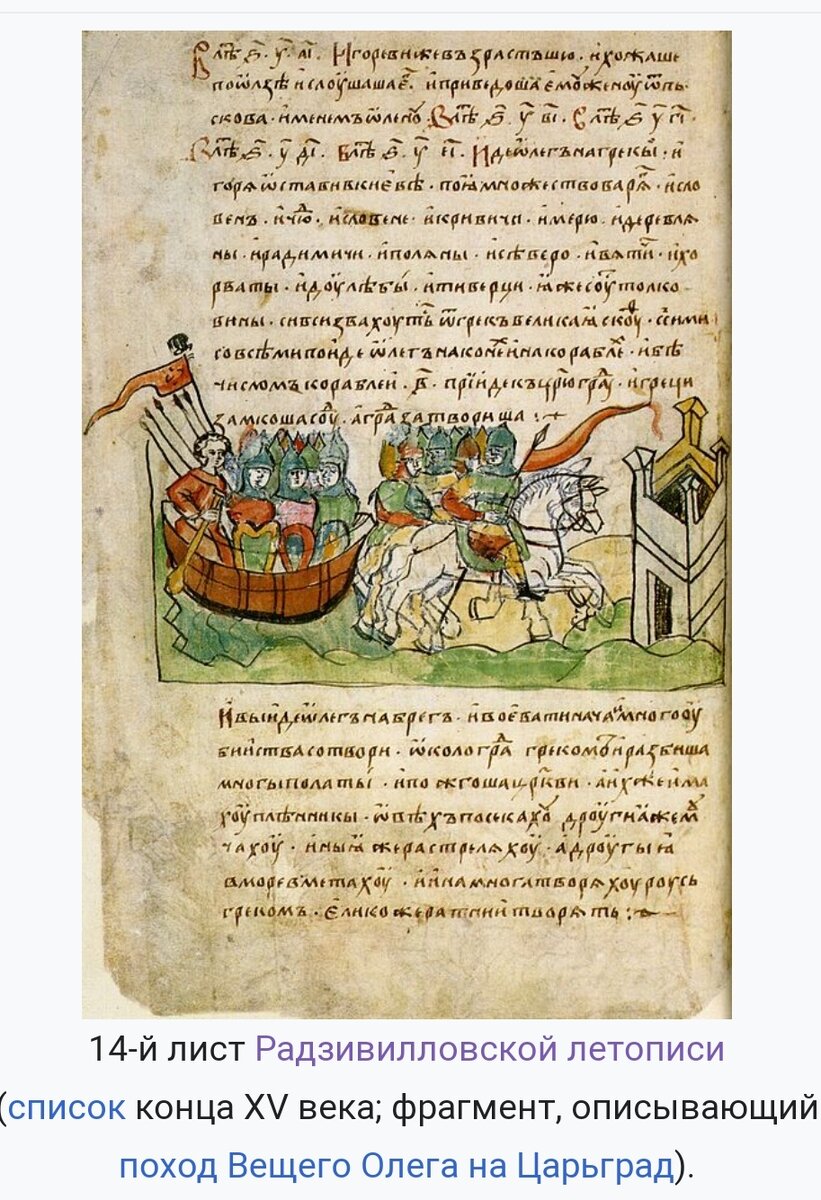 В лѣⷮ ҂ѕ҃ у҃ аі҃ · Игореви жевъзрастъшю · ихожаше
поѡлзѣ ислоушаша еⷢ҇ · иприведоша емоу женоу ѿпь
скова · именемъ ѡленоу · В лѣⷮ ҂ѕ҃ у҃ ві҃ · В лѣⷮ ҂ѕ҃ у҃ гі҃ ·
В лѣⷮ ҂ѕ҃ у҃ ді҃ · В лѣⷮ ҂ѕ҃ у҃ еі҃ · Иде ѡлегъ нагрекы · и
горѧ ѡставивкиевѣ · поѩ множествоварѧⷢ · исло
венъ · ичюⷣ · исловене · икривичи · имерю · идеревлѧ
ны · ирадимичи · иполѧны · исѣверо · ивѧтичи · ихо
рваты · идоулѣбы · итиверци · ꙗжесоуⷮ толко
вины · сивсизвахоутьⷭ ѿгрекъ великаꙗ скоуⷴ · ссими
совсѣмипоиде ѡлегъ наконеⷯ инакораблеⷯ · ибѣ
числомъ кораблеи · в҃ · прїиде къцрⷭ҇юграⷣу · игреци
замкошасоуⷣ · аграⷣ затвориша :
Ивыиде ѡлегъ набрегъ · ивоеватинача · имногооу
бииствасотвори · ѡколограⷣа грекомъ · иразбиша
многыполаты · ипожгошацр҃кви · аихже има
хоу плѣнникы · ѡвѣхъ посекахоу дроугиꙗжемꙋ
чахоу · иныꙗ жерастрелѧхоу · адроугыꙗ
вморевметахоу · иинамногатворѧхоу роусь
грекомъ · Еликожератнии творѧть :
14-й лист Радзивилловской летописи
(список конца XV века; фрагмент, описывающий
поход Вещего Олега на Царьград).